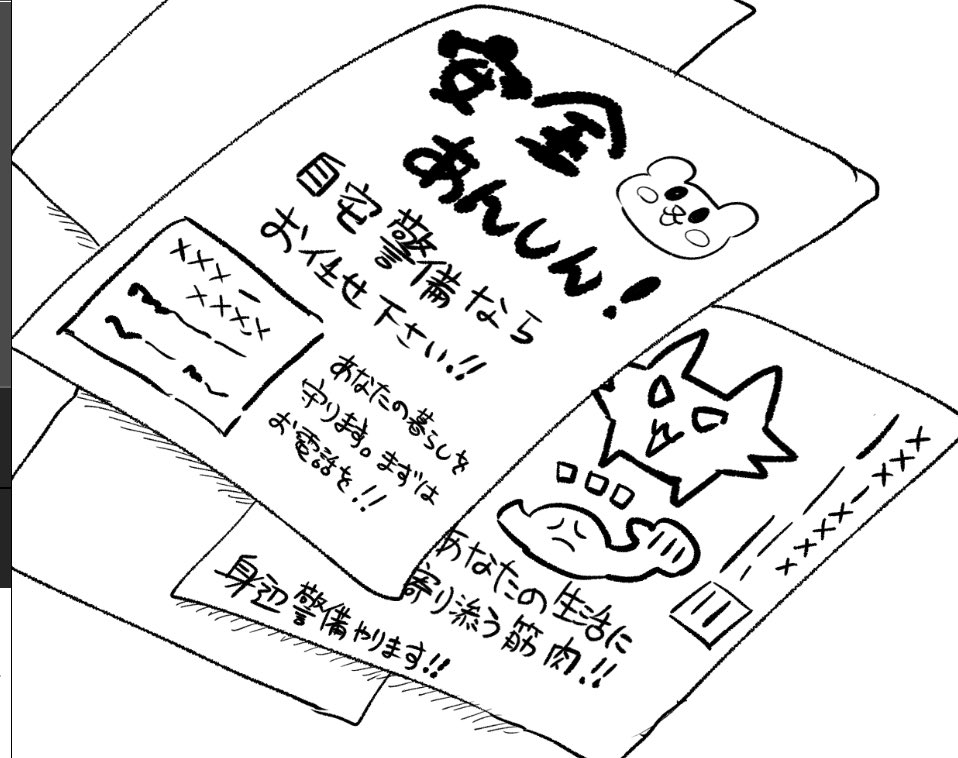 安全
あんしん!
自宅警備なら
お任せ下さい!!
×××ー
××××
あなたの暮らしを
守ります。まずは
お電話を!!
×××ー××××
あなたの生活に
寄り添う筋肉!!
身辺警備やります!!